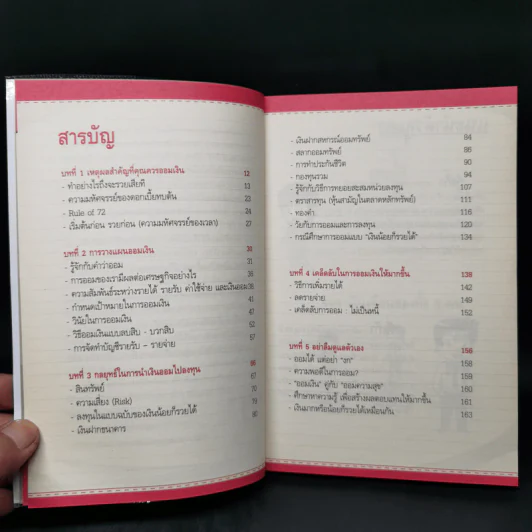 สารบัญ
บทที่ 1 เหตุผลสำคัญที่คุณควรออมเงิน 12
- ทำอย่างไรถึงจะรวยเสียที 13
- ความมหัศจรรย์ของดอกเบี้ยทบต้น
- Rule of 72
- เริ่มต้นก่อน รวยก่อน (ความมหัศจรรย์ของเวลา) 27
บทที่ 2 การวางแผนออมเงิน 30
- รู้จักกับคำว่าออม 31
- การออมของเรามีผลต่อเศรษฐกิจอย่างไร
- ความสัมพันธ์ระหว่างรายได้ รายรับ ค่าใช้จ่าย และเงินออม
- กำหนดเป้าหมายในการออมเงิน 41
- วินัยในการออมเงิน 47
- วิธีออมเงินแบบลบสิบ - บวกสิบ 52
- การจัดทำบัญชีรายรับ - รายจ่าย 57
บทที่ 3 กลยุทธ์ในการนำเงินออมไปลงทุน 66
- สินทรัพย์ 67
- ความเสี่ยง (Risk) 70
- ลงทุนในแบบฉบับของเงินน้อยก็รวยได้ 79
- เงินฝากธนาคาร 80
- เงินฝากสหกรณ์ออมทรัพย์ 84
- สลากออมทรัพย์ 86
- การทำประกันชีวิต 90
- กองทุนรวม 94
- รู้จักกับวิธีการทยอยสะสมหน่วยลงทุน 107
- ตราสารทุน (หุ้นสามัญในตลาดหลักทรัพย์) 111
- ทองคำ 116
- วัยกับการออมและการลงทุน 120
- กรณีศึกษาการออมแบบ "เงินน้อยก็รวยได้" 134
บทที่ 4 เคล็ดลับในการออมเงินให้มากขึ้น 138
- วิธีการเพิ่มรายได้ 142
- ลดรายจ่าย 149
- เคล็ดลับการออม : ไม่เป็นหนี้ 152
บทที่ 5 อย่าลืมดูแลตัวเอง 156
- ออมได้ แต่อย่า "งก" 158
- ความพอดีในการออม? 159
- "ออมเงิน" คู่กับ "ออมความสุข" 160
- ศึกษาหาความรู้ เพื่อสร้างผลตอบแทนให้มากขึ้น 161
- เงินมากหรือน้อยก็รวยได้เหมือนกัน 163